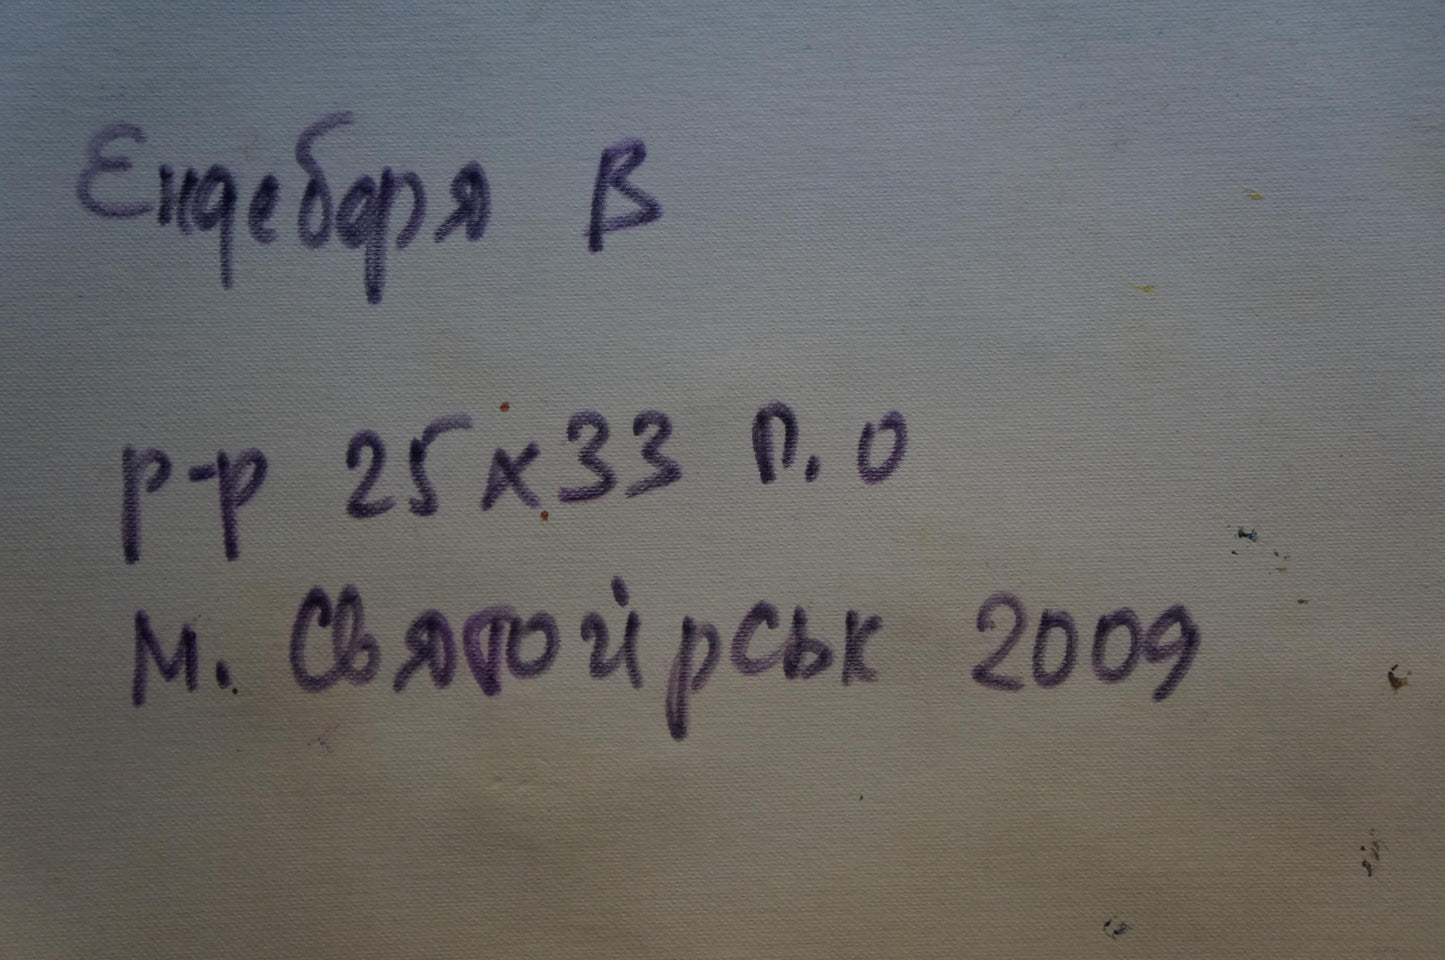 Ендебаря В
р-р 25х33 п.о
м. Святогірськ 2009